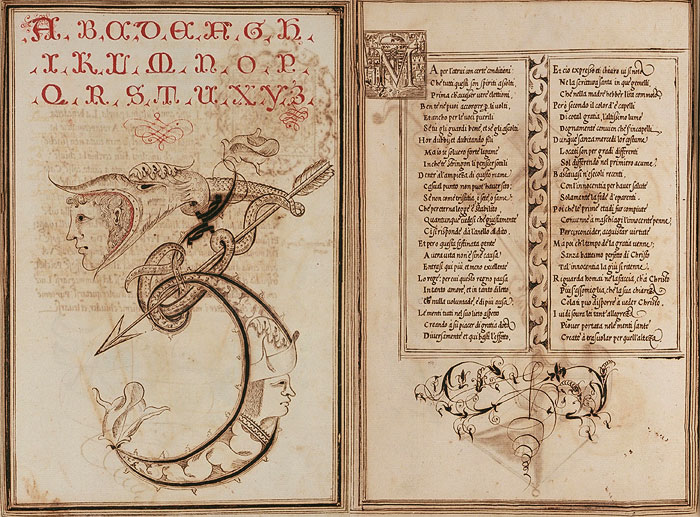 A B C D E F G H
I K L M N O P
Q R S T U X Y Z
MA per l'altrui con certe conditioni
Che tutti questi son spiriti asciolti
Prima c'havesser vere elettioni.
Ben te ne puoi accorger p i volti
Et ancho per le voci puerili
Se tu gli guardi bene, et se gli ascolti.
Hor dubbi tu et dubitando sili
Ma io ti solvero forte legame
In che te stringon li pensier sottili
Dentr' all'ampiezza di questo reame
Casual punto non puot'haver sito
Se non come tristitia, o sete o fame.
Che per eterna legge è stabilito
Quantunque vedi sì che giustamente
Ci si risponde da l'anello al dito.
Et pero questa festinata gente
A vera vita non è sine causa
Entrasi qui più, et meno eccellente
Lo rege, per cui questo regno pausa
In tanto amore, et in tanto diletto
Che nulla voluntade, è di più ausa
Le menti tutti nel suo lieto aspetto
Creando à su piacer di gratia dota
Diversamente et qui basti l'effetto.
Et cio expresso et chiaro vi si nota
Ne la scrittura santa in que' gemelli
Che nella madre hebber l'ira commota
Però secondo il color d'e capelli
Di cotal gratia, l'altissimo lume
Degnamente convien che s'incapelli
Dunque sanza mercedi lor costume
Locati son per gradi differenti
Sol differendo nel primiero acume
Bastavasi n'e secoli recenti
Con l'innocentia per haver salute
Solamente la fede d'e parenti
Poi che le prime etadi fur compiute
Convenne à maschi agl'innocenti penne
Per circoncider, acquistar virtute
Ma poi che'l tempo de la gratia venne
Sanza battismo perfetto di Christo
Tal innocentia la giu si ritenne
Riguarda homai ne la faccia, ch'a Christo
Più s'assomiglia, che la sua chiarezza
Sola ti può disporre à veder Christo
I vidi sovra lei tant'allegrezza
Piover portata ne le menti sante
Create à trasvolar per quell'altezza